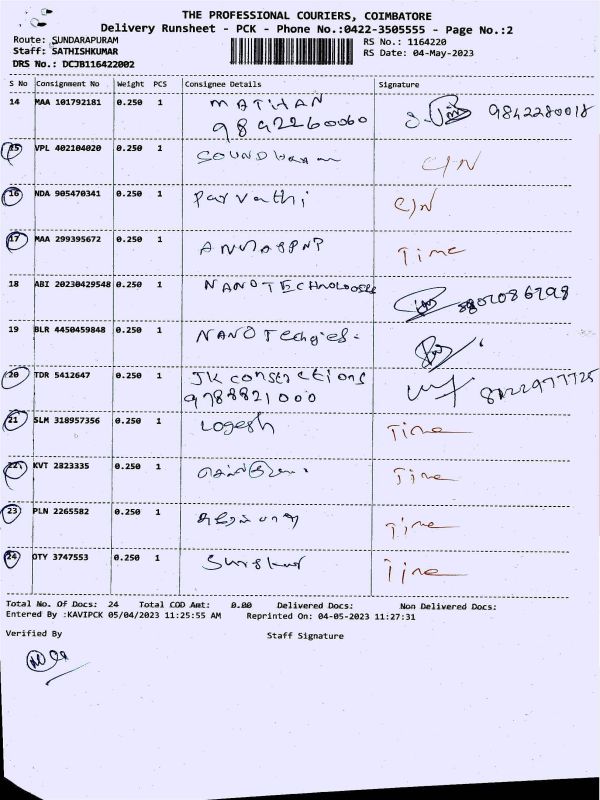 THE PROFESSIONAL COURIERS, COIMBATORE
Delivery Runsheet - PCK - Phone No.:0422-3505555 - Page No.:2
Route: SUNDARAPURAM RS No.: 1164220
Staff: SATHISHKUMAR RS Date: 04-May-2023
DRS No.: DCJB116422002
S No Consignment No Weight PCS Consignee Details Signature
14 MAA 101792181 0.250 1 MATHAN 9842280018
9892260060
15 VPL 402104020 0.250 1 C/N
16 NDA 905470341 0.250 1 Parvathi C/N
17 MAA 299395672 0.250 1 Time
18 ABI 20230429548 0.250 1 NANO TECHNOLOGSES
19 BLR 4450459848 0.250 1 NANO
20 TDR 5412647 0.250 1 JK constructions 8122977725
9788821000
21 SLM 318957356 0.250 1 Logesh Time
22 KVT 2823335 0.250 1 Time
23 PLN 2265582 0.250 1 Time
24 OTY 3747553 0.250 1 Time
Total No. Of Docs: 24 Total COD Amt: 0.00 Delivered Docs: Non Delivered Docs:
Entered By :KAVIPCK 05/04/2023 11:25:55 AM Reprinted On: 04-05-2023 11:27:31
Verified By Staff Signature